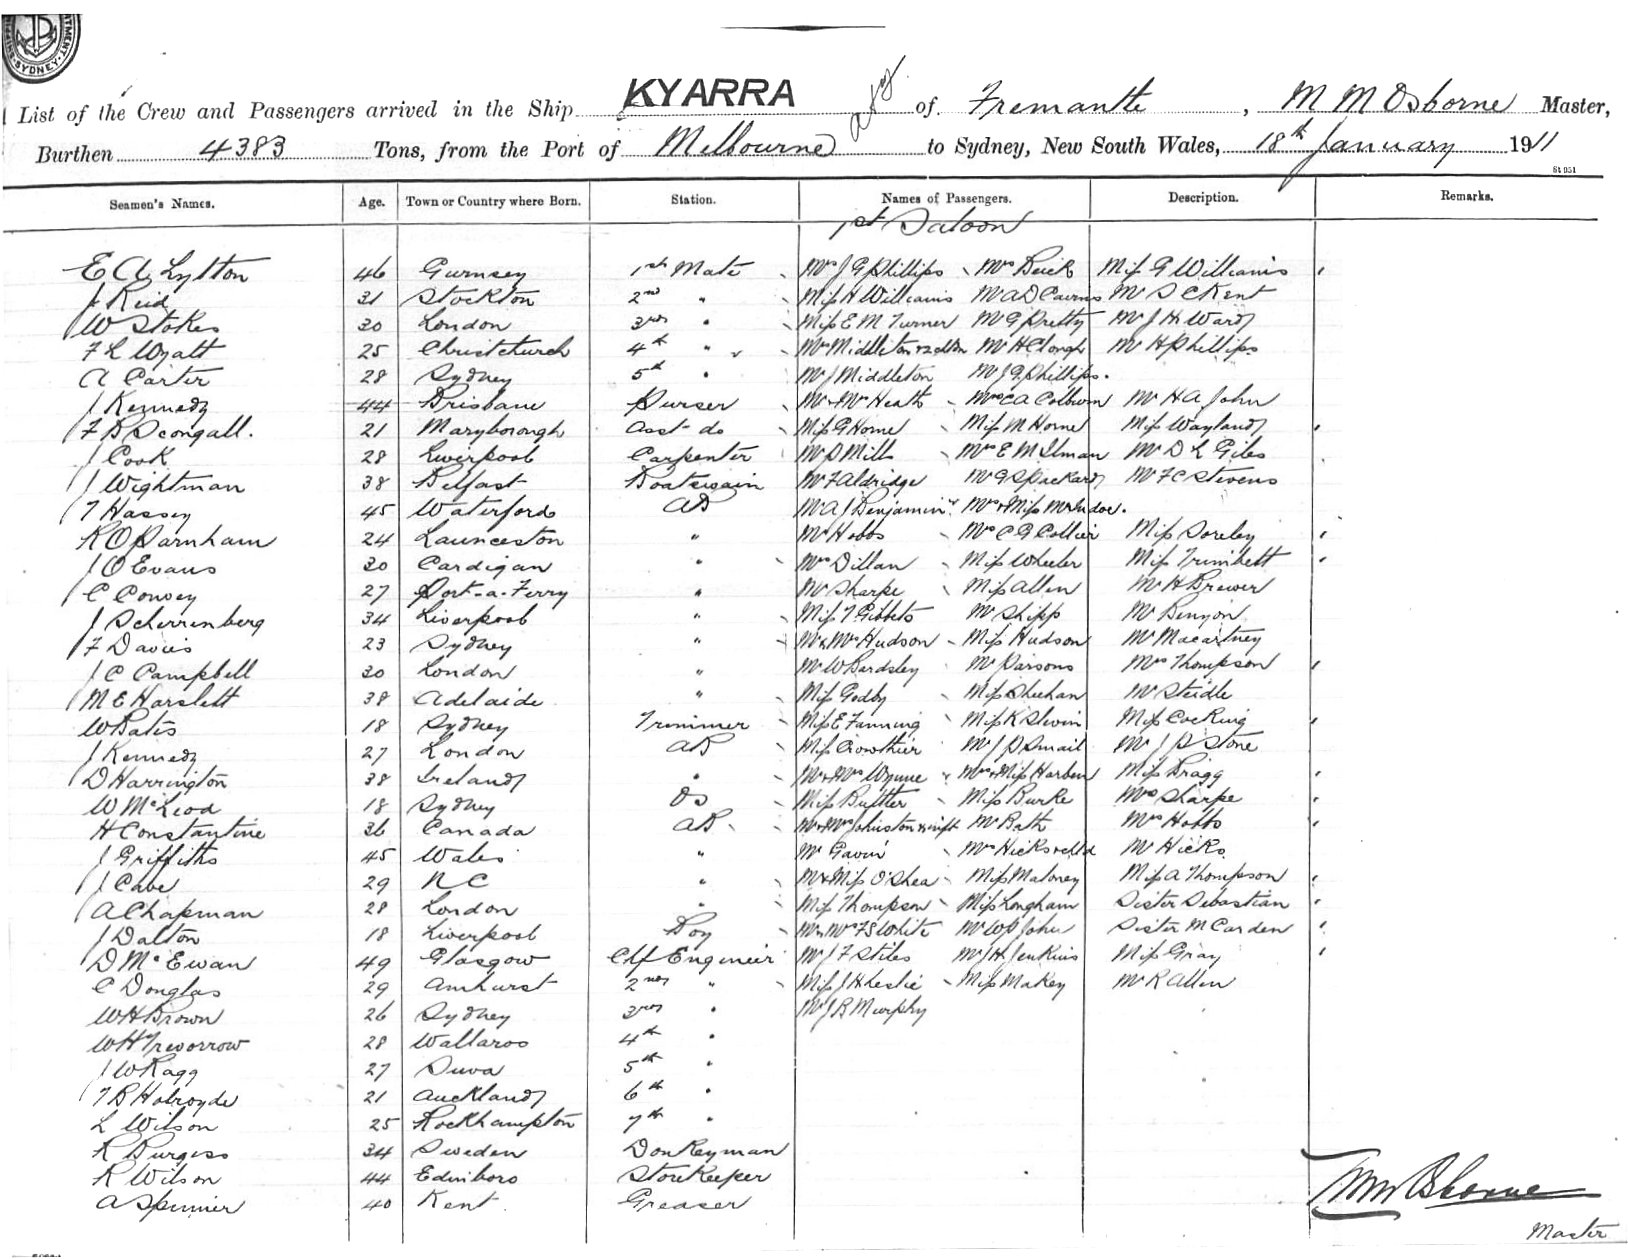 SYDNEY
List of the Crew and Passengers arrived in the Ship KYARRA of Fremantle, M M Osborne Master,
Burthen 4383 Tons, from the Port of Melbourne to Sydney, New South Wales, 18th January 1911
St 951
Seamen's Names. Age. Town or Country where Born. Station. Names of Passengers. Description. Remarks.
1st Saloon
E A Lytton 46 Gurnsey 1st Mate Mrs J G Phillips Mrs Beick Miss G Williams
J Reid 31 Stockton 2nd " Miss H Williams Mr A D Cairns Mr S C Kent
W Stokes 30 London 3rd " Miss E M Turner Mr G Pretty Mr J H Ward
F L Wyatt 25 Christchurch 4th " Mrs Middleton & 2 chdn Mr H Clough Mr H Phillips
A Carter 28 Sydney 5th " Mr J Middleton Mr J G Phillips.
J Kennedy 44 Brisbane Purser Mr & Mrs Heath Mrs C A Colburn Mr H A John
F B Scongall. 21 Maryborough Asst do Miss G Horne Miss M Horne Miss Wayland
J Cook 28 Liverpool Carpenter Mr P Mills Mrs E M Ilman Mr D L Giles
J Wightman 38 Belfast Boatswain Mr F Aldridge Mr G S Packard Mr F C Stevens
T Hassey 45 Waterford AB Mr A J Benjamin Mrs & Miss McIndoe.
R O Parnham 24 Launceston " Mr Hobbs Mrs C G Collier Miss Soreley
J O Evans 30 Cardigan " Mrs Dillan Miss Wheeler Miss Trimlett
C Convey 27 Port-a-Ferry " Mr Sharpe Miss Allen Mr H Brewer
J Scherrenberg 34 Liverpool " Miss T Gibbets Mr Shipp Mr Benyon
F Davies 23 Sydney " Mr & Mrs Hudson Miss Hudson Mr Macartney
J C Campbell 30 London " Mr W Bardsley Mr Parsons Mrs Thompson
M E Harslett 38 Adelaide " Miss Godby Miss Sheehan Mr Steidle
W Bates 18 Sydney Trimmer Miss E Fanning Miss K Slevin Miss Cocking
J Kennedy 27 London AB Miss Crowthier Mr J P Smail Mr J P Stone
D Harrington 38 Ireland " Mr & Mrs Wynne Mrs & Miss Harben Miss Bragg
W McLeod 18 Sydney OS Miss Buttler Miss Burke Mrs Sharpe
H Constantine 36 Canada AB Mr & Mrs Johnston & inft Mr Bath Mrs Hobbs
J Griffiths 45 Wales " Mr Gavin Mrs Hicks & chld Mr Hicks
J Cabe 29 N C " Mr & Miss O'Shea Miss Maloney Miss A Thompson
A Chapman 28 London " Miss Thompson Miss Longham Sister Sebastian
J Dalton 18 Liverpool Boy Mr & Mrs F S White Mr W P John Sister M Carden
D McEwan 49 Glasgow Chf Engineer Mr J F Stiles Mr J H Jenkins Miss Gray
C Douglas 29 Amhurst 2nd " Miss J H Leslie Miss Makey Mr R Allen
W H Brown 26 Sydney 3rd " Mr J B Murphy
W H Trevorrow 28 Wallaroo 4th "
J W Ragg 27 Suva 5th "
T B Holroyde 21 Auckland 6th "
L Wilson 25 Rockhampton 7th "
R Burgess 34 Sweden Donkeyman
R Wilson 44 Edinboro Storekeeper
A Spinner 40 Kent Greaser
M M Osborne
Master